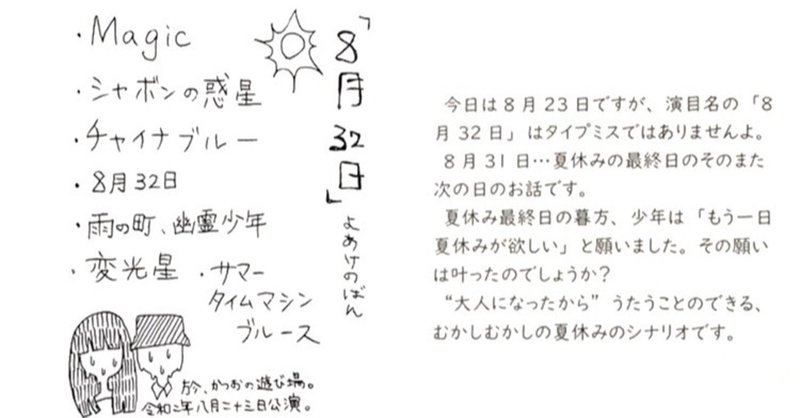 「8月32日」
よあけのばん
・Magic
・シャボンの惑星
・チャイナブルー
・8月32日
・雨の町、幽霊少年
・変光星
・サマー
タイムマシン
ブルース
かつおの遊び場。
令和二年八月二十三日公演。
今日は8月23日ですが、演目名の「8
月32日」はタイプミスではありませんよ。
8月31日…夏休みの最終日のそのまた
次の日のお話です。
夏休み最終日の暮方、少年は「もう一日
夏休みが欲しい」と願いました。その願い
は叶ったのでしょうか？
“大人になったから”うたうことのできる、
むかしむかしの夏休みのシナリオです。